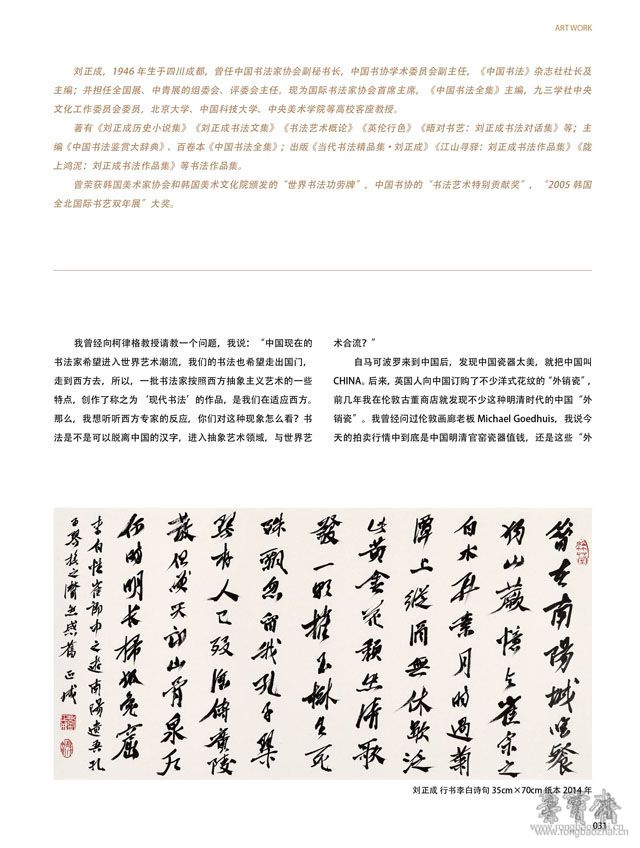 ART WORK
刘正成，1946 年生于四川成都，曾任中国书法家协会副秘书长，中国书协学术委员会副主任，《中国书法》杂志社社长及
主编；并担任全国展、中青展的组委会、评委会主任。现为国际书法家协会首席主席，《中国书法全集》主编，九三学社中央
文化工作委员会委员，北京大学、中国科技大学、中央美术学院等高校客座教授。
著有《刘正成历史小说集》《刘正成书法文集》《书法艺术概论》《英伦行色》《晤对书艺：刘正成书法对话集》等；主
编《中国书法鉴赏大辞典》、百卷本《中国书法全集》；出版《当代书法精品集·刘正成》《江山寻驿：刘正成书法作品集》《陇
上鸿泥：刘正成书法作品集》等书法作品集。
曾荣获韩国美术家协会和韩国美术文化院颁发的“世界书法功劳牌”，中国书协的“书法艺术特别贡献奖”，“2005 韩国
全北国际书艺双年展”大奖。
我曾经向柯律格教授请教一个问题，我说：“中国现在的
书法家希望进入世界艺术潮流，我们的书法也希望走出国门，
走到西方去，所以，一批书法家按照西方抽象主义艺术的一些
特点，创作了称之为‘现代书法’的作品，是我们在适应西方。
那么，我想听听西方专家的反应，你们对这种现象怎么看？书
法是不是可以脱离中国的汉字，进入抽象艺术领域，与世界艺
术合流？”
自马可波罗来到中国后，发现中国瓷器太美，就把中国叫
CHINA。后来，英国人向中国订购了不少洋式花纹的“外销瓷”，
前几年我在伦敦古董商店就发现不少这种明清时代的中国“外
销瓷”。我曾经问过伦敦画廊老板 Michael Goedhuis，我说今
天的拍卖行情中到底是中国明清官窑瓷器值钱，还是这些“外
昔在南陽城唯餐
獨山蕨憶与崔宗之
白水弄素月時過菊
潭上縱酒無休歇泛
此黄金花頹然清歌
發一朝摧玉樹生死
殊飄忽留我孔子琴
琴存人已殁誰傳廣陵
散但哭邙山骨泉户
何時明長掃狐兔窟
李白憶崔郎中之遊南陽遺吾孔
子琴撫之潸然感舊 正成
刘正成 行书李白诗句 35cm×70cm 纸本 2014 年
荣宝斋
www.rongbaozhai.cn
031